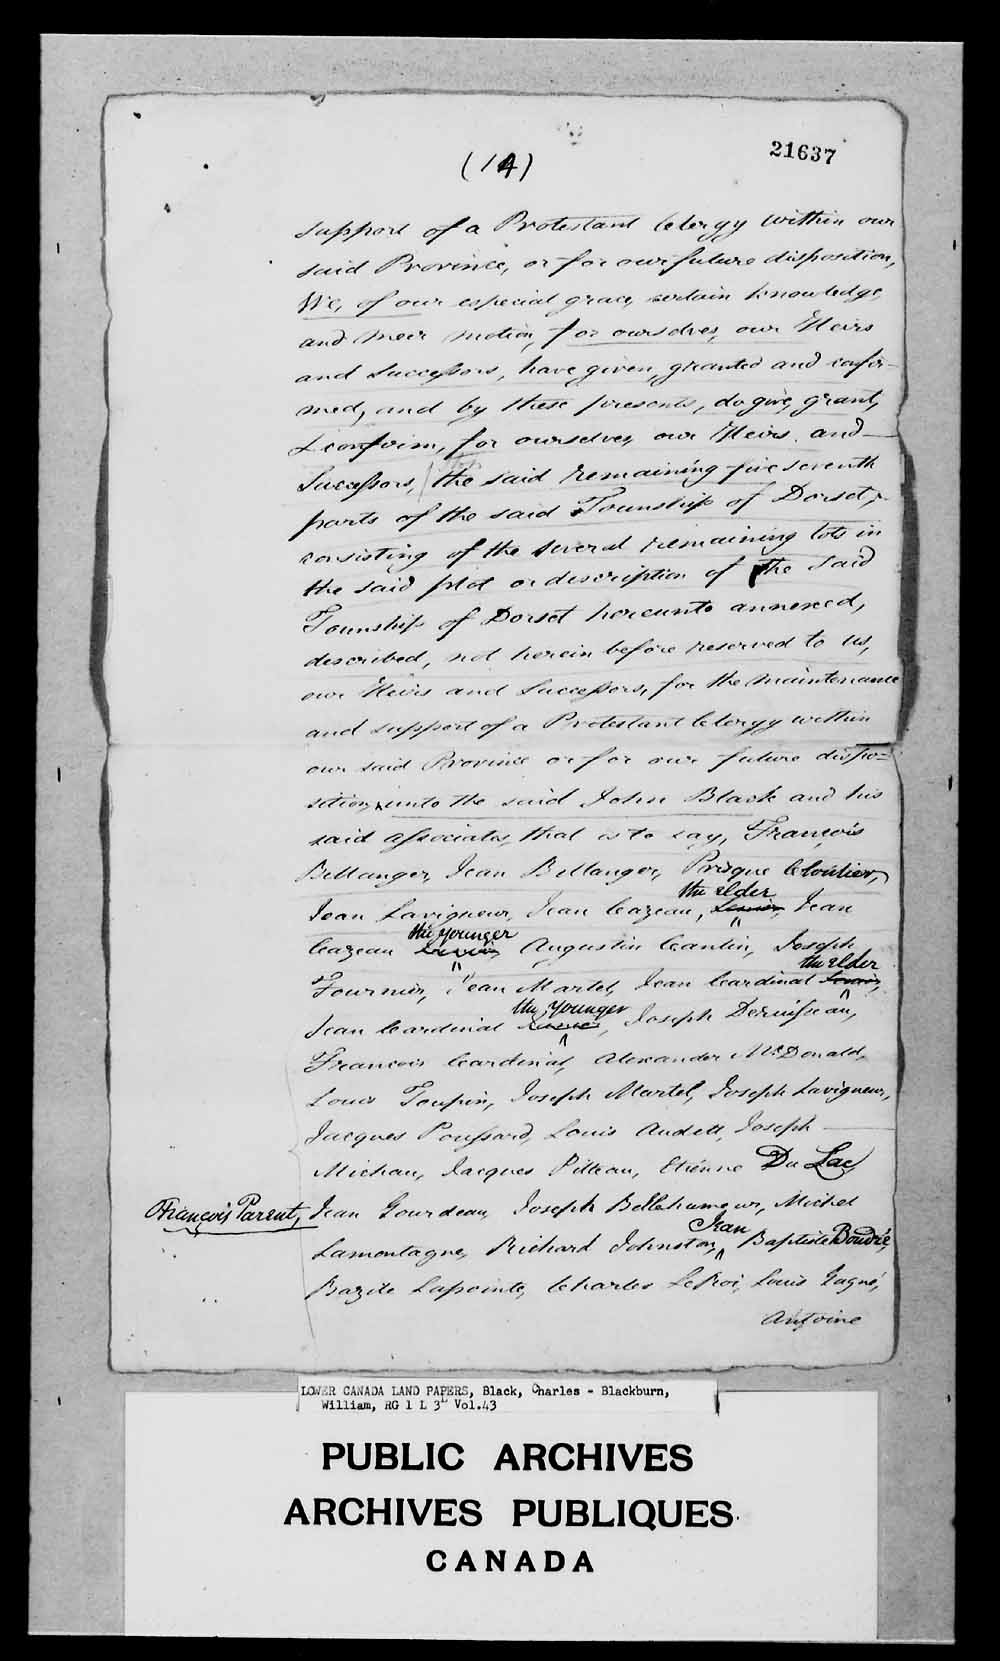 (14)
21637
support of a Protestant Clergy within our
said Province, or for our future disposition,
We, of our especial grace, certain knowledge,
and meer motion, for ourselves, our Heirs
and Successors, have given, granted and confir-
med, and by these presents, do give, grant,
& confirm, for ourselves, our Heirs and
Successors, the said remaining five seventh
parts of the said Township of Dorset,
consisting of the several remaining lots in
the said plot or description of the said
Township of Dorset hereunto annexed,
described, not herein before reserved to us,
our Heirs and Successors, for the maintenance
and support of a Protestant Clergy within
our said Province or for our future dispo=
sition, unto the said John Black and his
said associates, that is to say, François
Bellanger, Jean Bellanger, Prisque Cloutier,
the elder
Jean Lavigneur, Jean Cazeau, Senior, Jean
the younger
Cazeau Augustin Cantin, Joseph
the elder
Fournier, Jean Martel, Jean Cardinal Senior,
the younger
Jean Cardinal Junior, Joseph Deruisseau,
Francois Cardinal, Alexander McDonald,
Louis Toupin, Joseph Martel, Joseph Lavigneur,
Jacques Poussard, Louis Audett, Joseph
Michau, Jacques Pilteau, Etiénne Du Lac,
François Parent, Jean Gourdeau, Joseph Bellehumeur, Michel
Jean
Lamontagne, Richard Johnston, Baptiste Boudré,
Bazile Lapointe, Charles LeRoi, Louis Gagné,
Antoine
LOWER CANADA LAND PAPERS, Black, Charles - Blackburn,
William, RG 1 L 3L Vol.43
PUBLIC ARCHIVES
ARCHIVES PUBLIQUES
CANADA